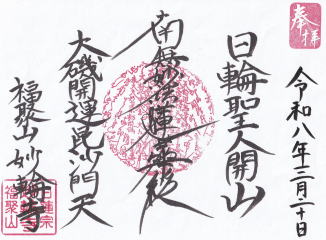 奉拝
令和八年二月二十日
日輪聖人開山
南無妙法蓮華経
大磯開運毘沙門天
福聚山妙輪寺
日蓮宗
福聚山